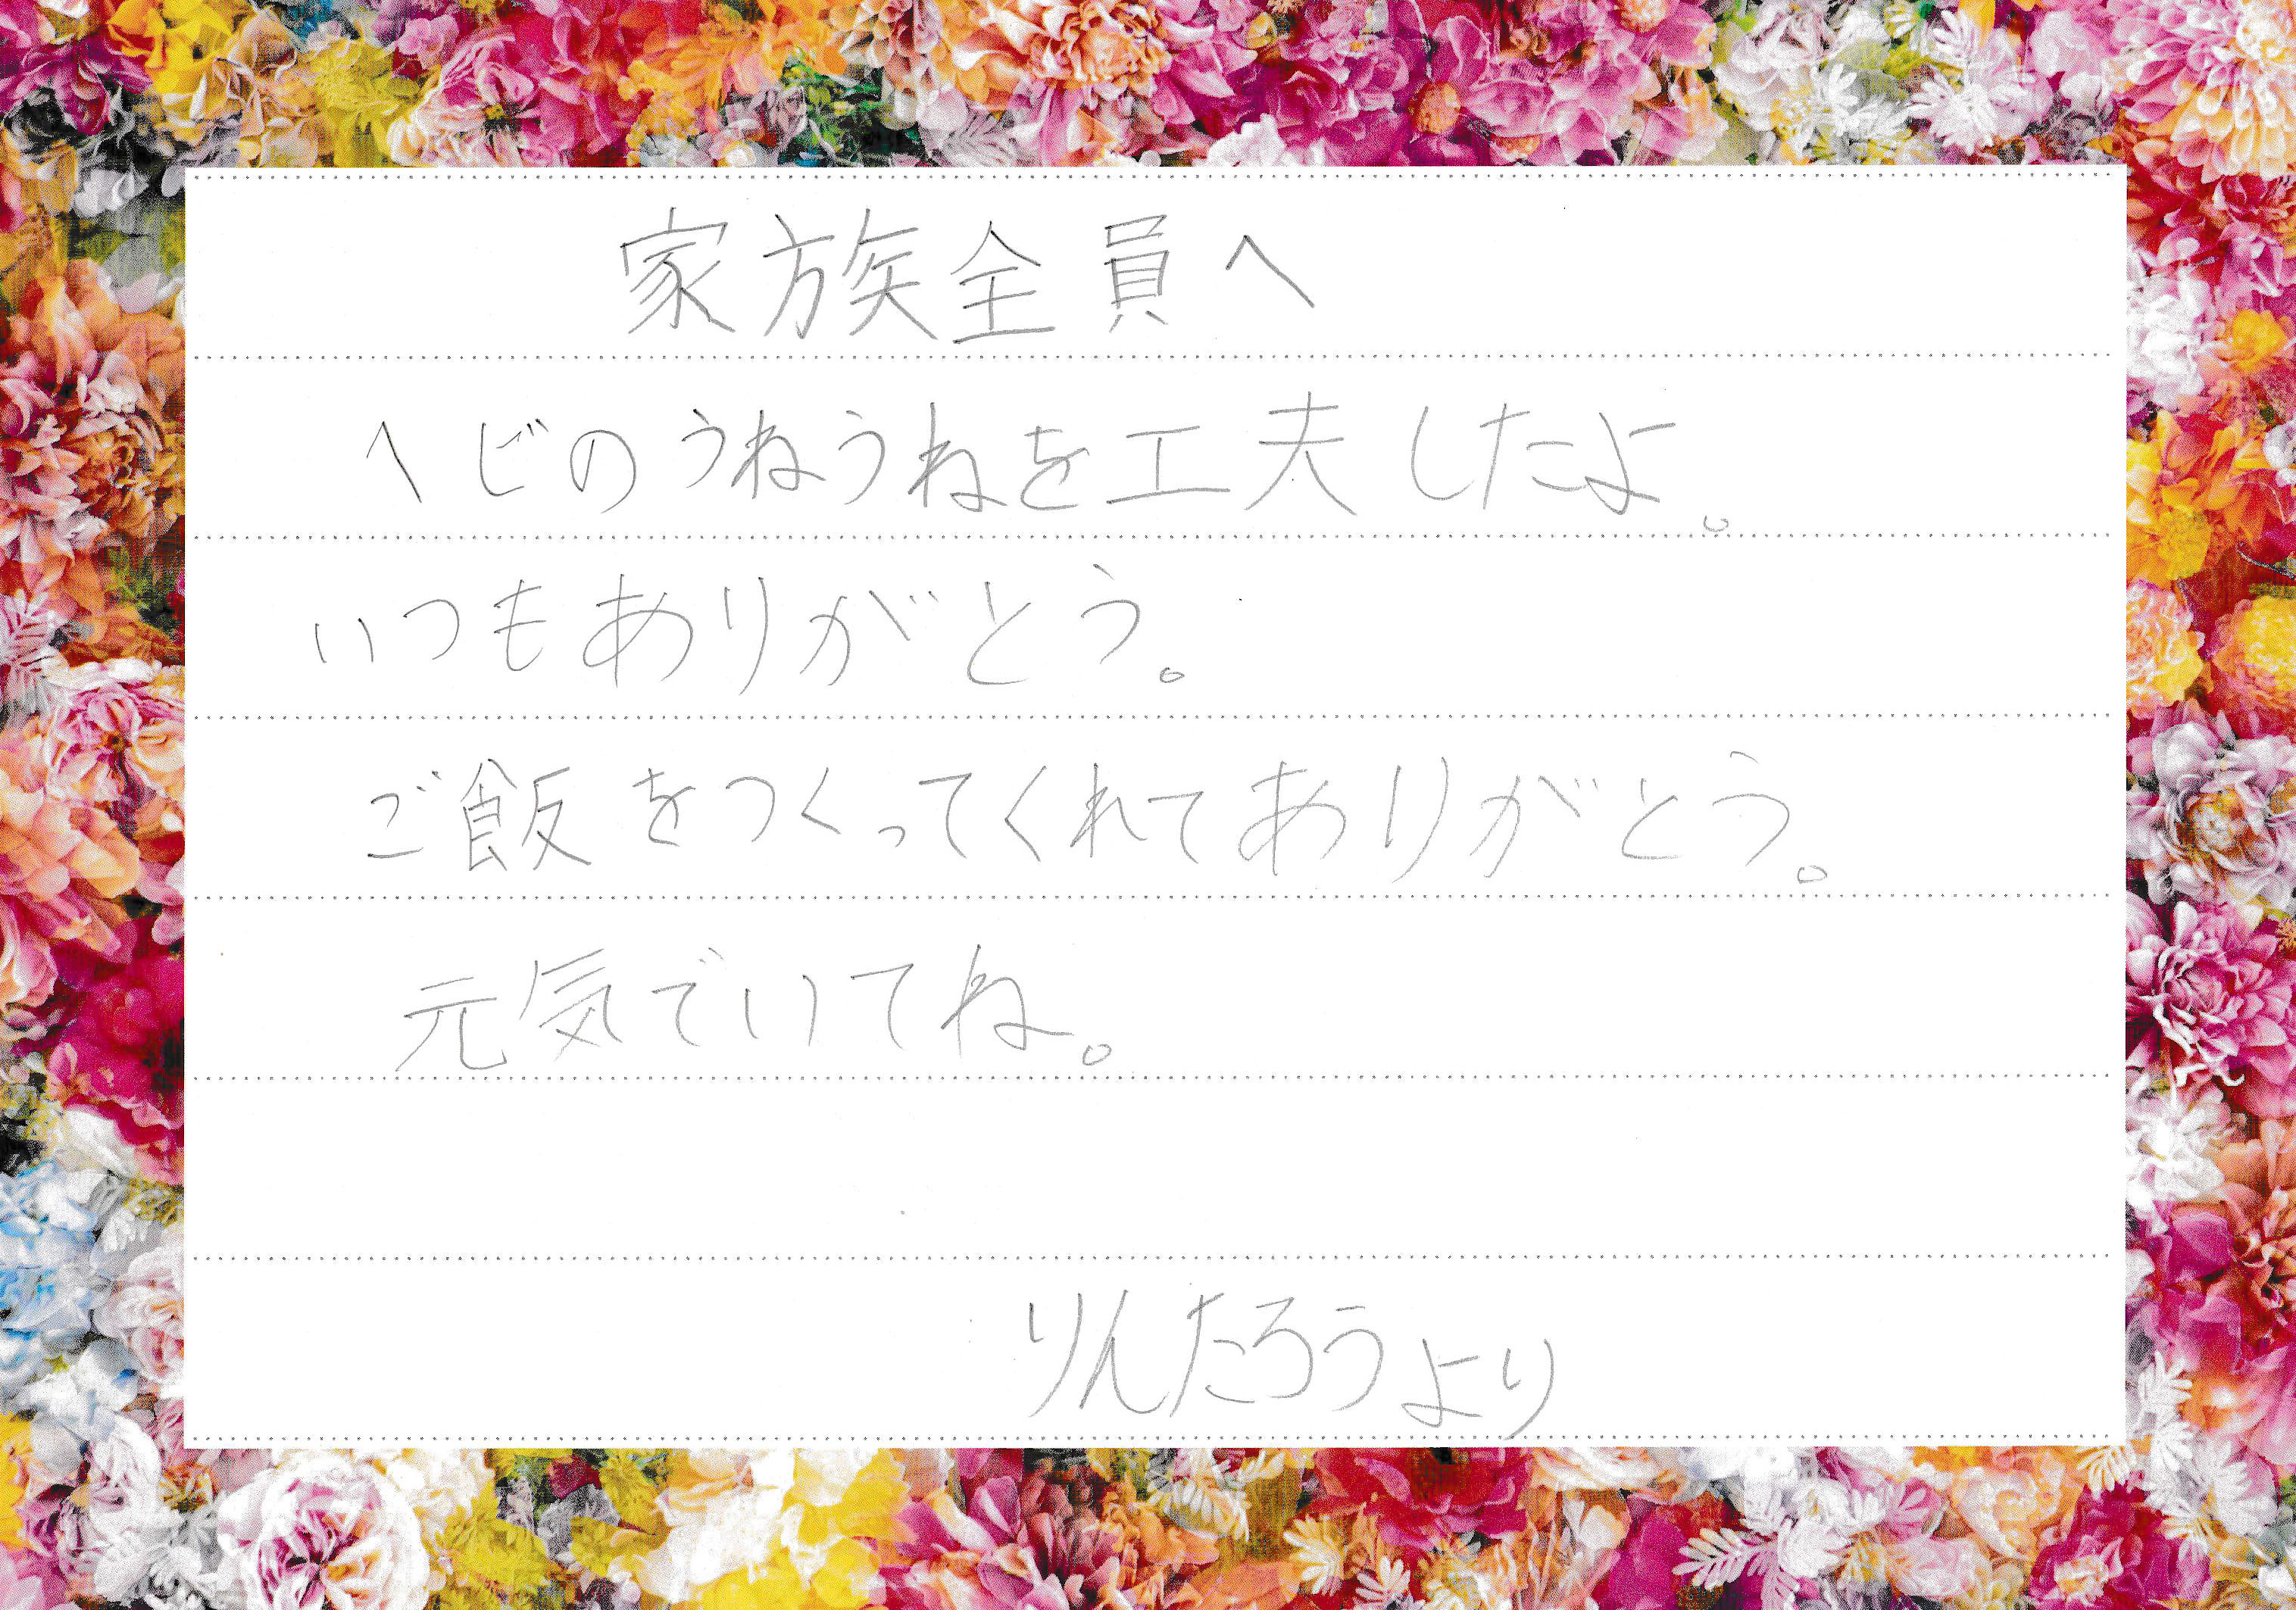 家族全員へ
ヘビのうねうねを工夫したよ。
いつもありがとう。
ご飯をつくってくれてありがとう。
元気でいてね。
りんたろうより